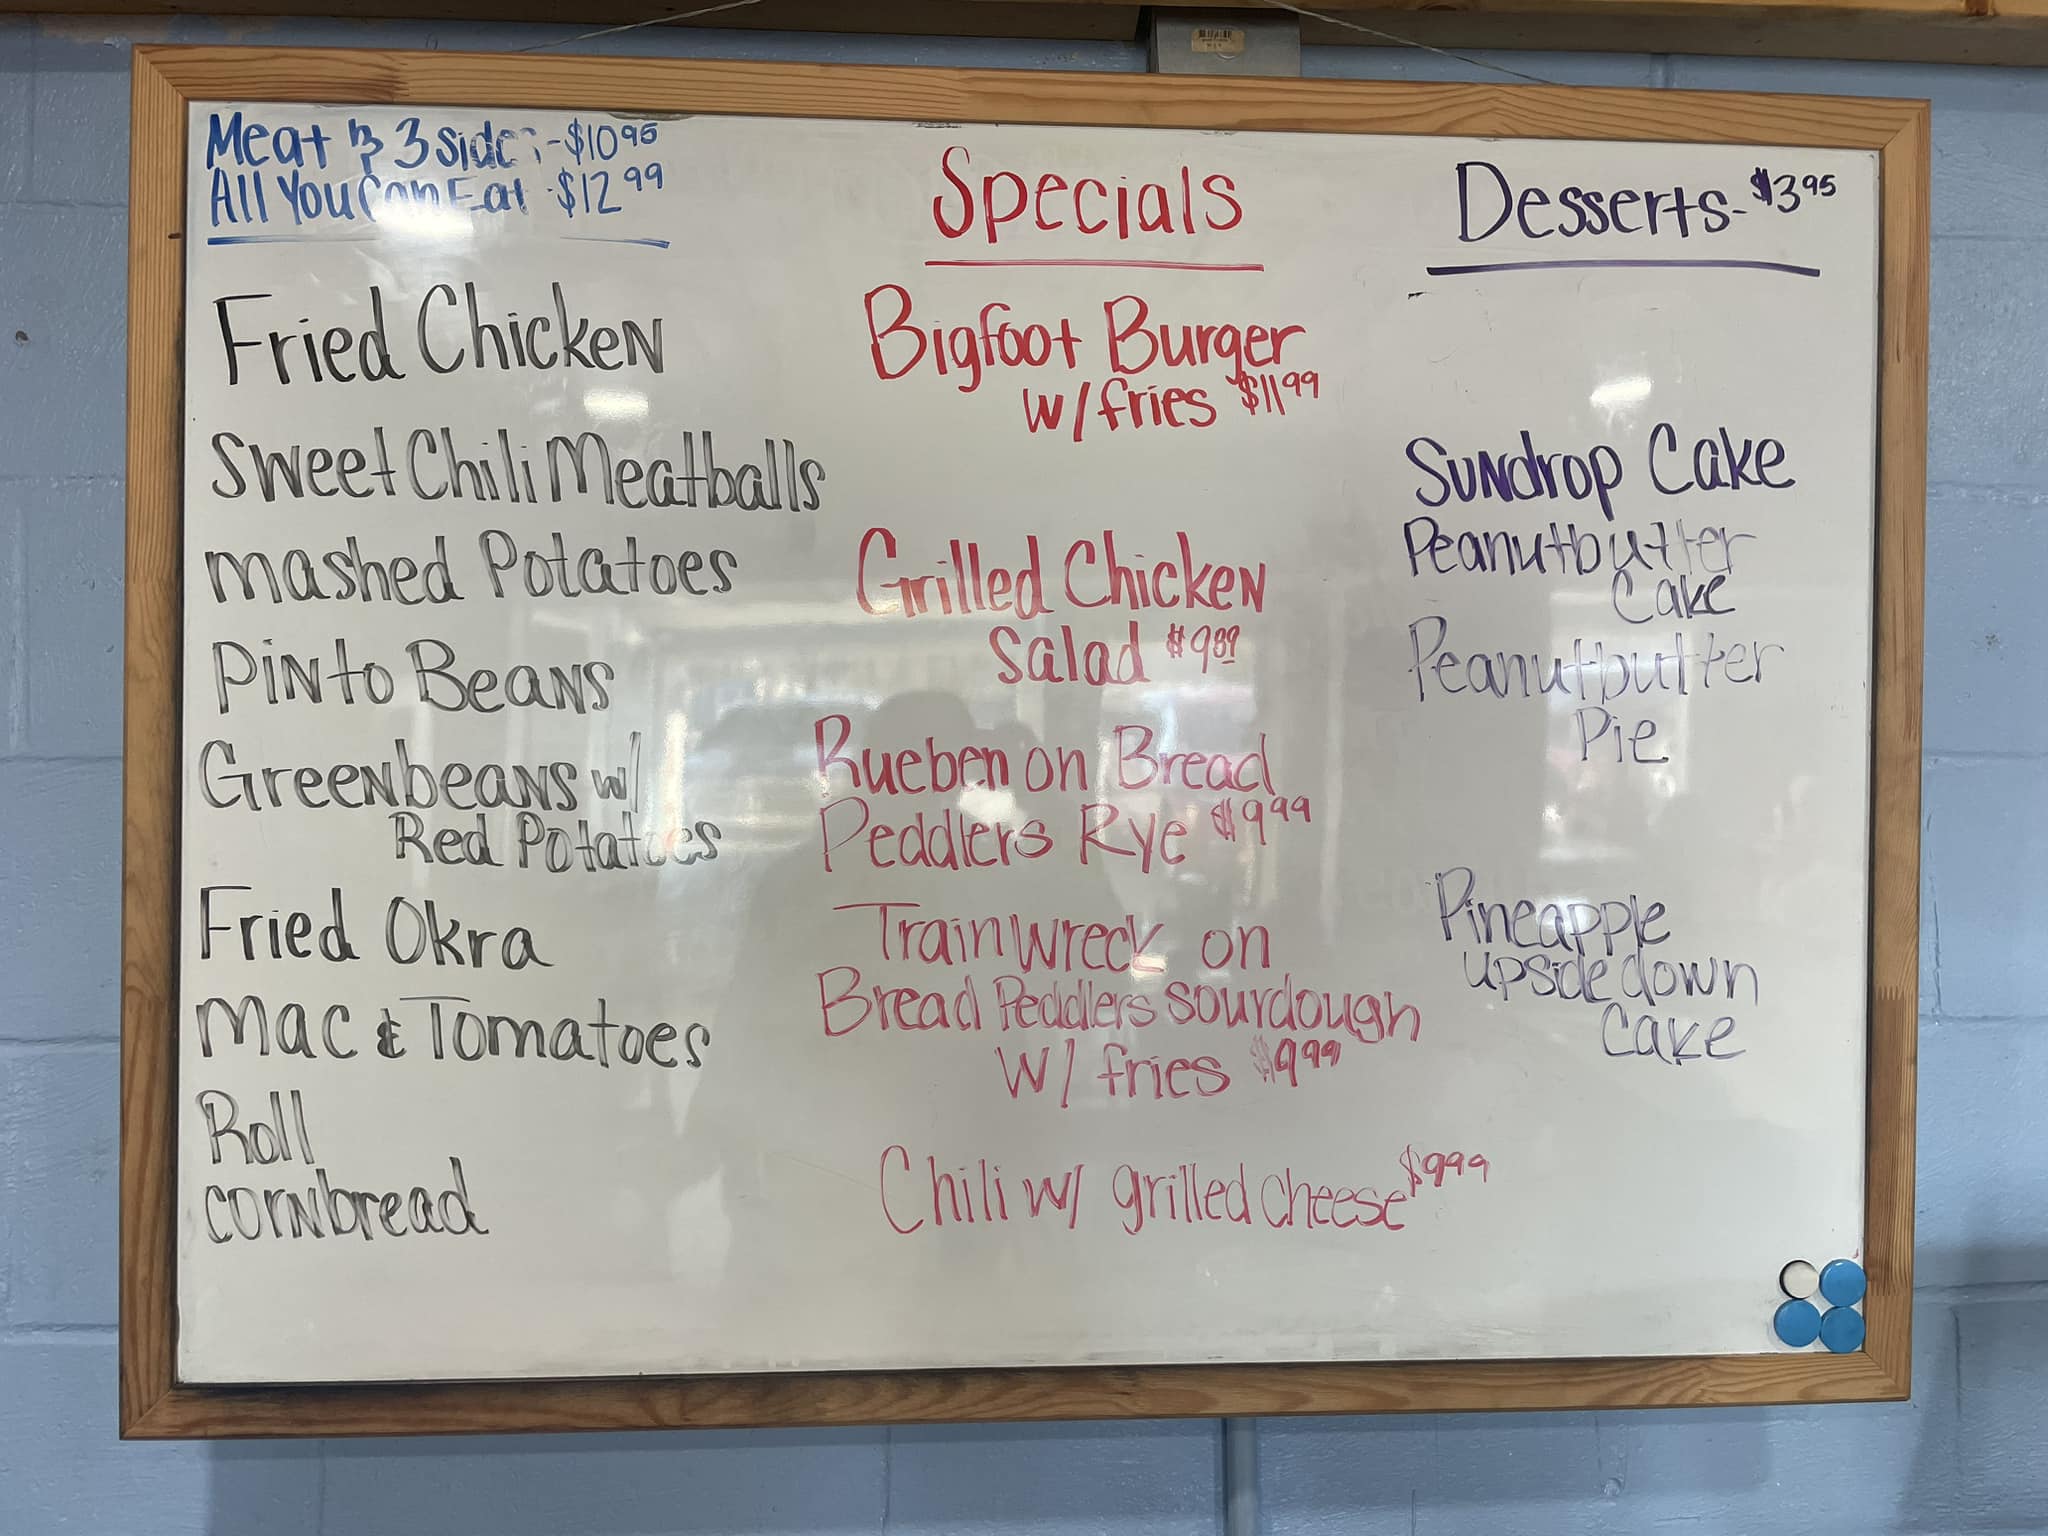 Meat & 3 sides - $10.95
All You Can Eat - $12.99
Fried Chicken
Sweet Chili Meatballs
mashed Potatoes
Pinto Beans
Greenbeans w/
Red Potatoes
Fried Okra
Mac & Tomatoes
Roll
cornbread
Specials
Bigfoot Burger
w/fries $11.99
Grilled Chicken
Salad
Rueben on Bread
Peddlers Rye $9.99
Trainwreck on
Bread Peddlers sourdough
w/ fries $9.99
Chili w/ grilled cheese $9.99
Desserts - $3.95
Sundrop Cake
Peanutbutter
Cake
Peanutbutter
Pie
Pineapple
upside down
Cake